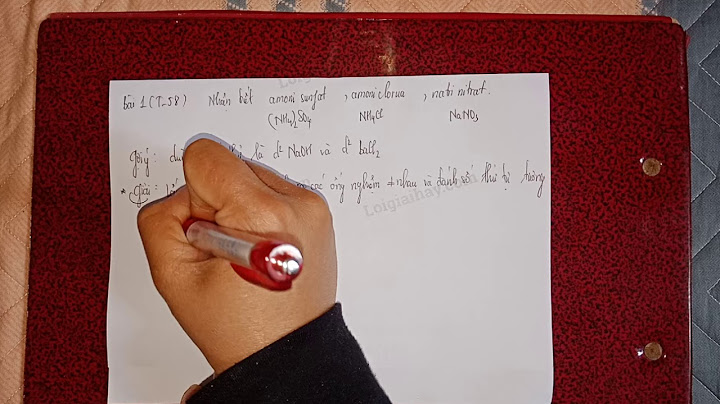 bài 1 (T-58) Nhận biết amoni sunfat , amoni clorua , natri nitrat.
(NH4)2SO4 NH4Cl NaNO3
gợi ý: là d² NaOH và d² baCl2
* Giải: các ống nghiệm ≠ nhau và đánh số thứ tự tương
Loigiaihay.com